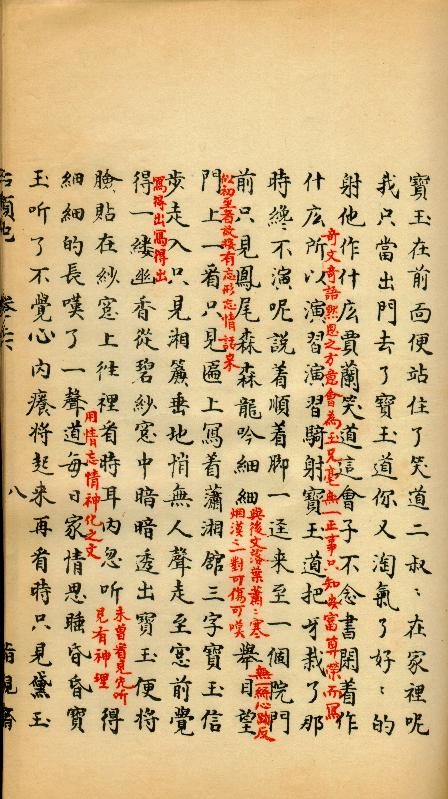 寶玉在前面便站住了笑道二叔〻在家裡呢
我只當出門去了寶玉道你又淘氣了好〻的
射他作什庅賈蘭笑道這會子不念書閑着作
奇文奇語黙思之方意會為玉兄毫無一正事只知安富尊榮而寫
什庅所以演習演習騎射寶玉道把牙栽了那
時纔不演呢説着順着脚一逕来至一個院門
前只見鳳尾森森龍吟細細
與後文落葉蕭〻寒
烟漠〻一對可傷可嘆
舉目望
無一絲心跡反
似初至者故接有忘形忘情話来
門上一看只見匾上寫着瀟湘舘三字寶玉信
步走入只見湘簾垂地悄無人聲走至窓前覺
寫得出寫得出
得一縷幽香從碧紗窓中暗暗透出寶玉便將
臉貼在紗窓上往裡看時耳內忽听
未曾看見先听
見有神理
得
用情忘情神化之文
細細的長嘆了一聲道每日家情思睡昏昏寶
玉听了不覺心內癢將起来再看時只見黛玉
八